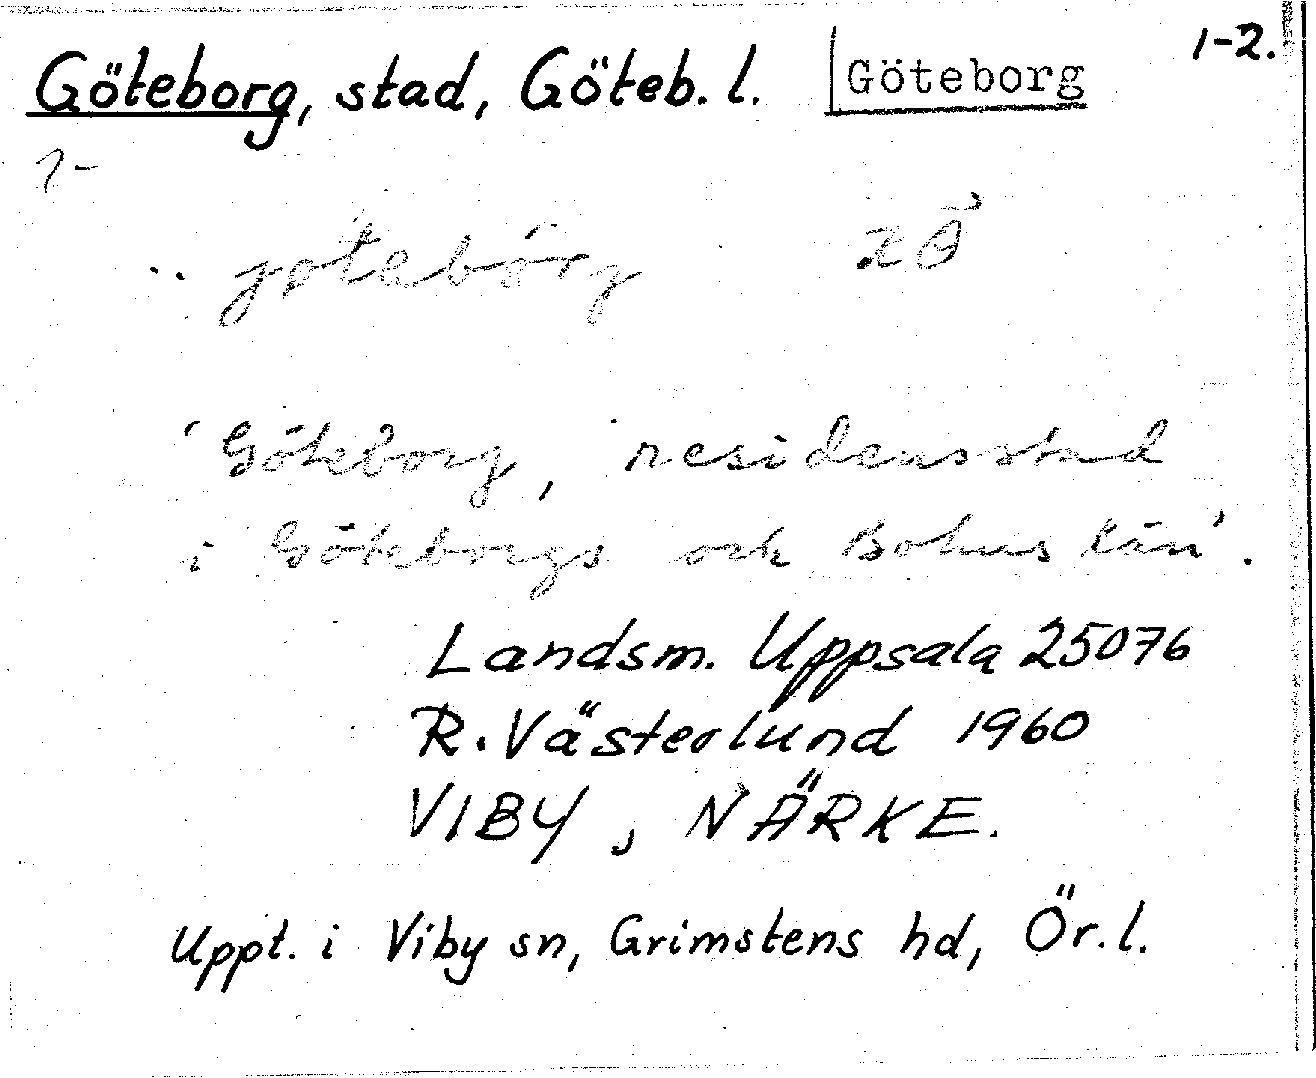 Göteborg, stad, Göteb. l. Göteborg 1-2.
‘Göteborg, residensstad
i Göteborgs och Bohus län’.
Landsm. Uppsala 25076
R. Västerlund 1960
VIBY, NÄRKE.
Uppt. i Viby sn, Grimstens hd, Ör. l.